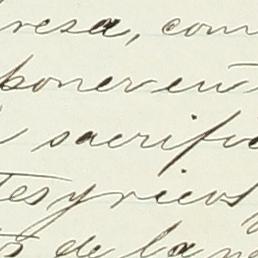 resa, com
poner en
sacrific
tes y ricos
de la